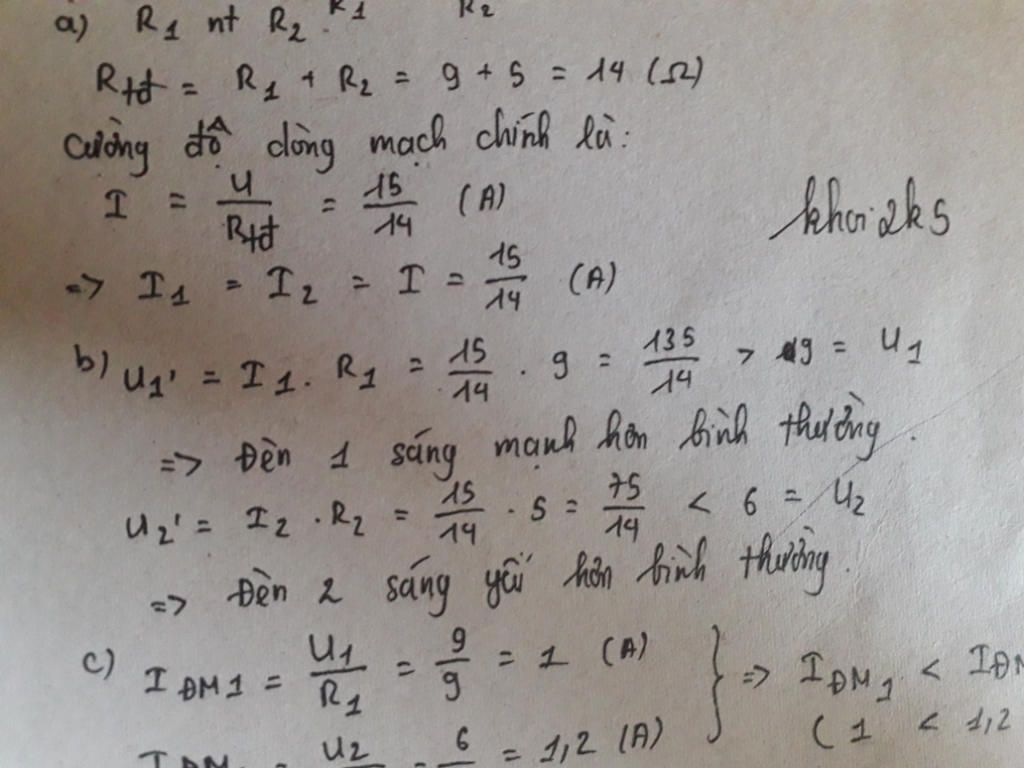 R1 R2
a) R1 nt R2.
Rtđ = R1 + R2 = 9 + 5 = 14 (Ω)
Cường độ dòng mạch chính là:
I = U/Rtđ = 15/14 (A)
khoi2k5
=> I1 = I2 = I = 15/14 (A)
b) U1' = I1. R1 = 15/14 . 9 = 135/14 > 9 = U1
=> Đèn 1 sáng mạnh hơn bình thường.
U2' = I2 . R2 = 15/14 . 5 = 75/14 < 6 = U2
=> Đèn 2 sáng yếu hơn bình thường.
c) IĐM1 = U1/R1 = 9/9 = 1 (A) } => IĐM1 < IĐM
(1 < 1,2
IĐM = U2 = 6 = 1,2 (A)